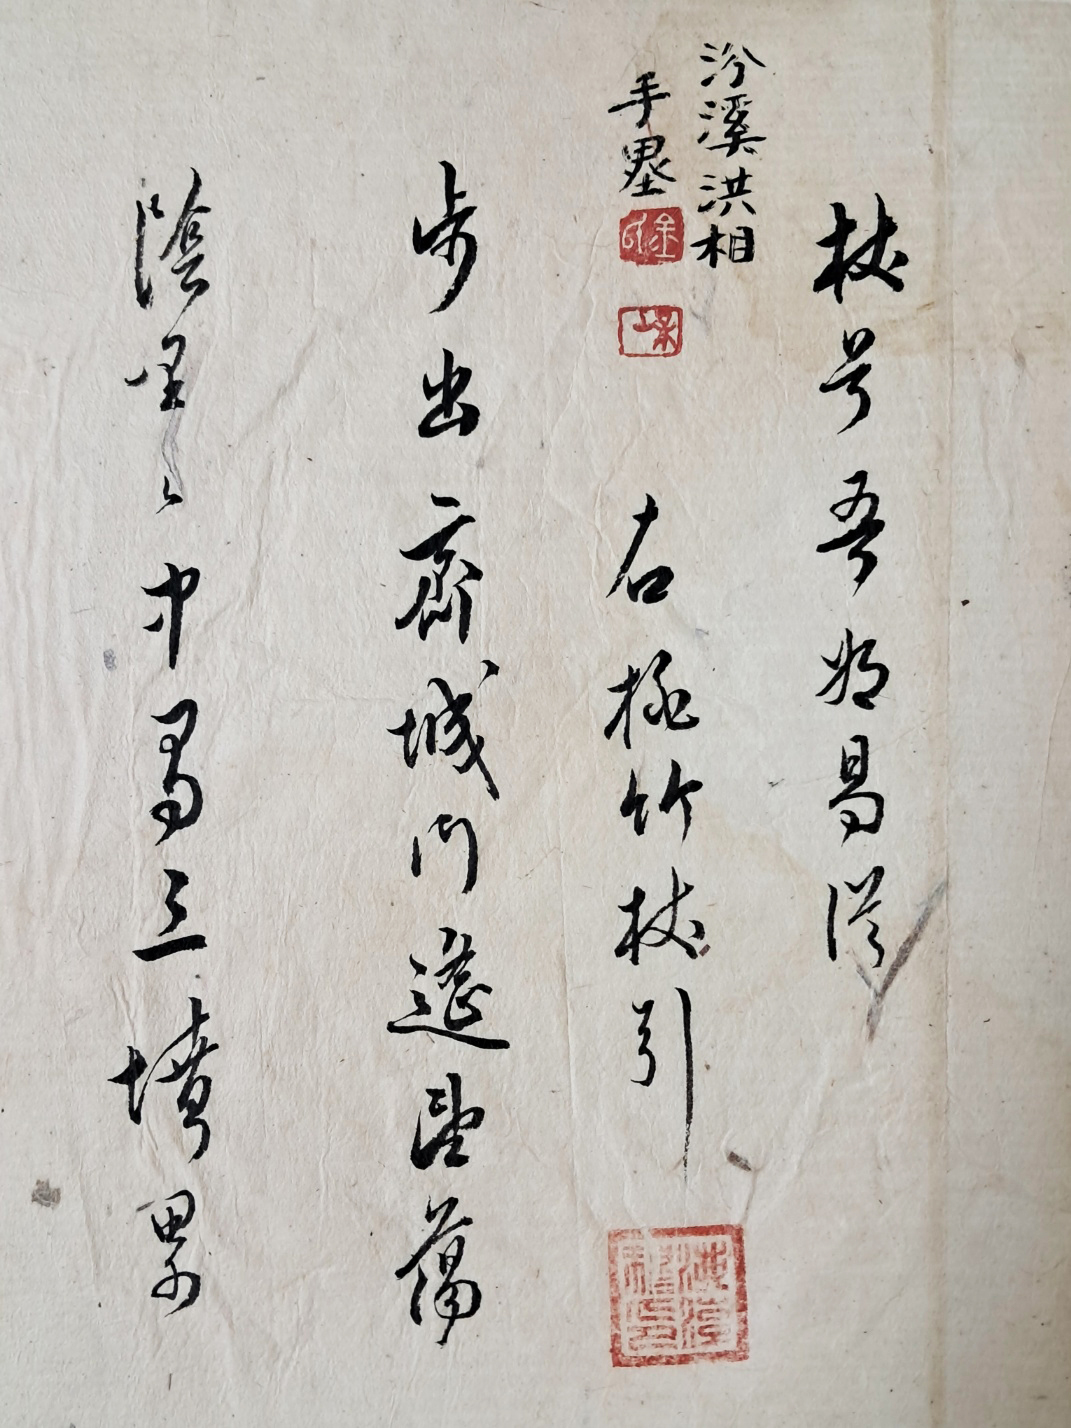 杖兮吾將曷從
汾溪洪相
手墨
右桃竹杖引
步出齊城門遙望蕩
陰里〻中有三墳累